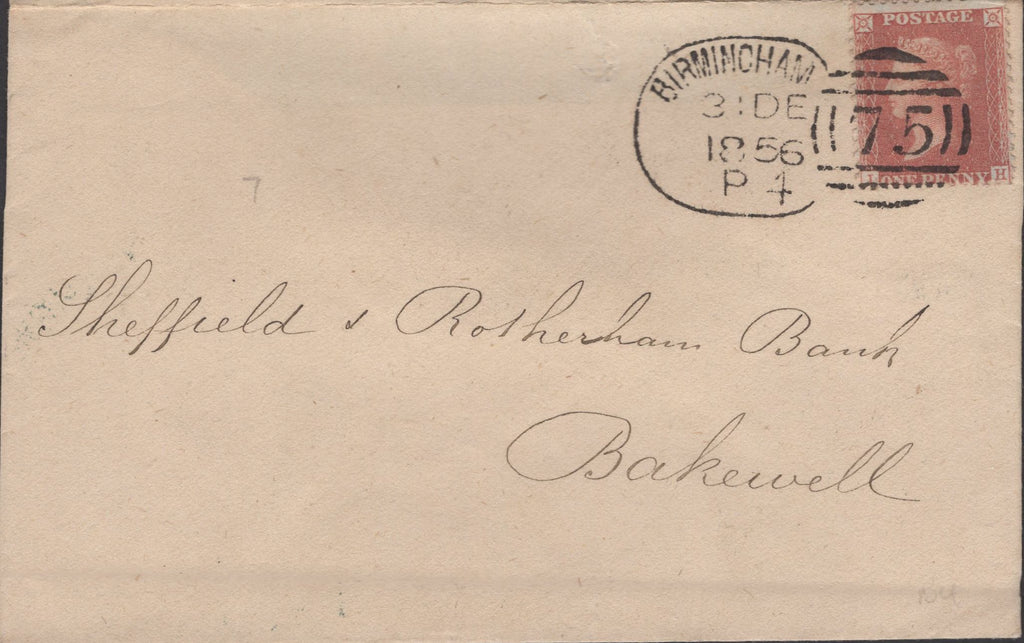 POSTAGE
BIRMINGHAM
31DE
1856
P 4
75
ONE PENNY H
7
Sheffield & Rotherham Bank
Bakewell